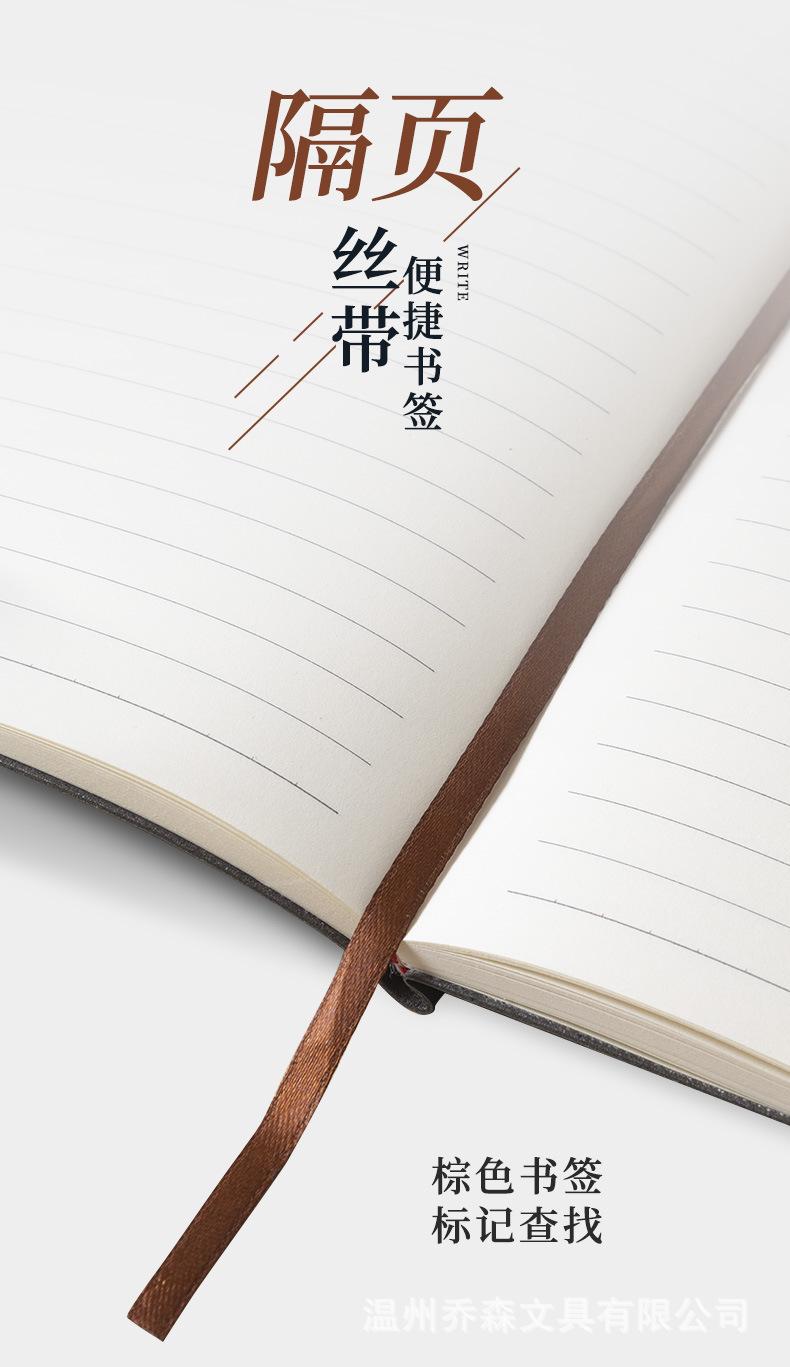 隔页
丝带
便捷书签
WRITE
棕色书签
标记查找
温州乔森文具有限公司